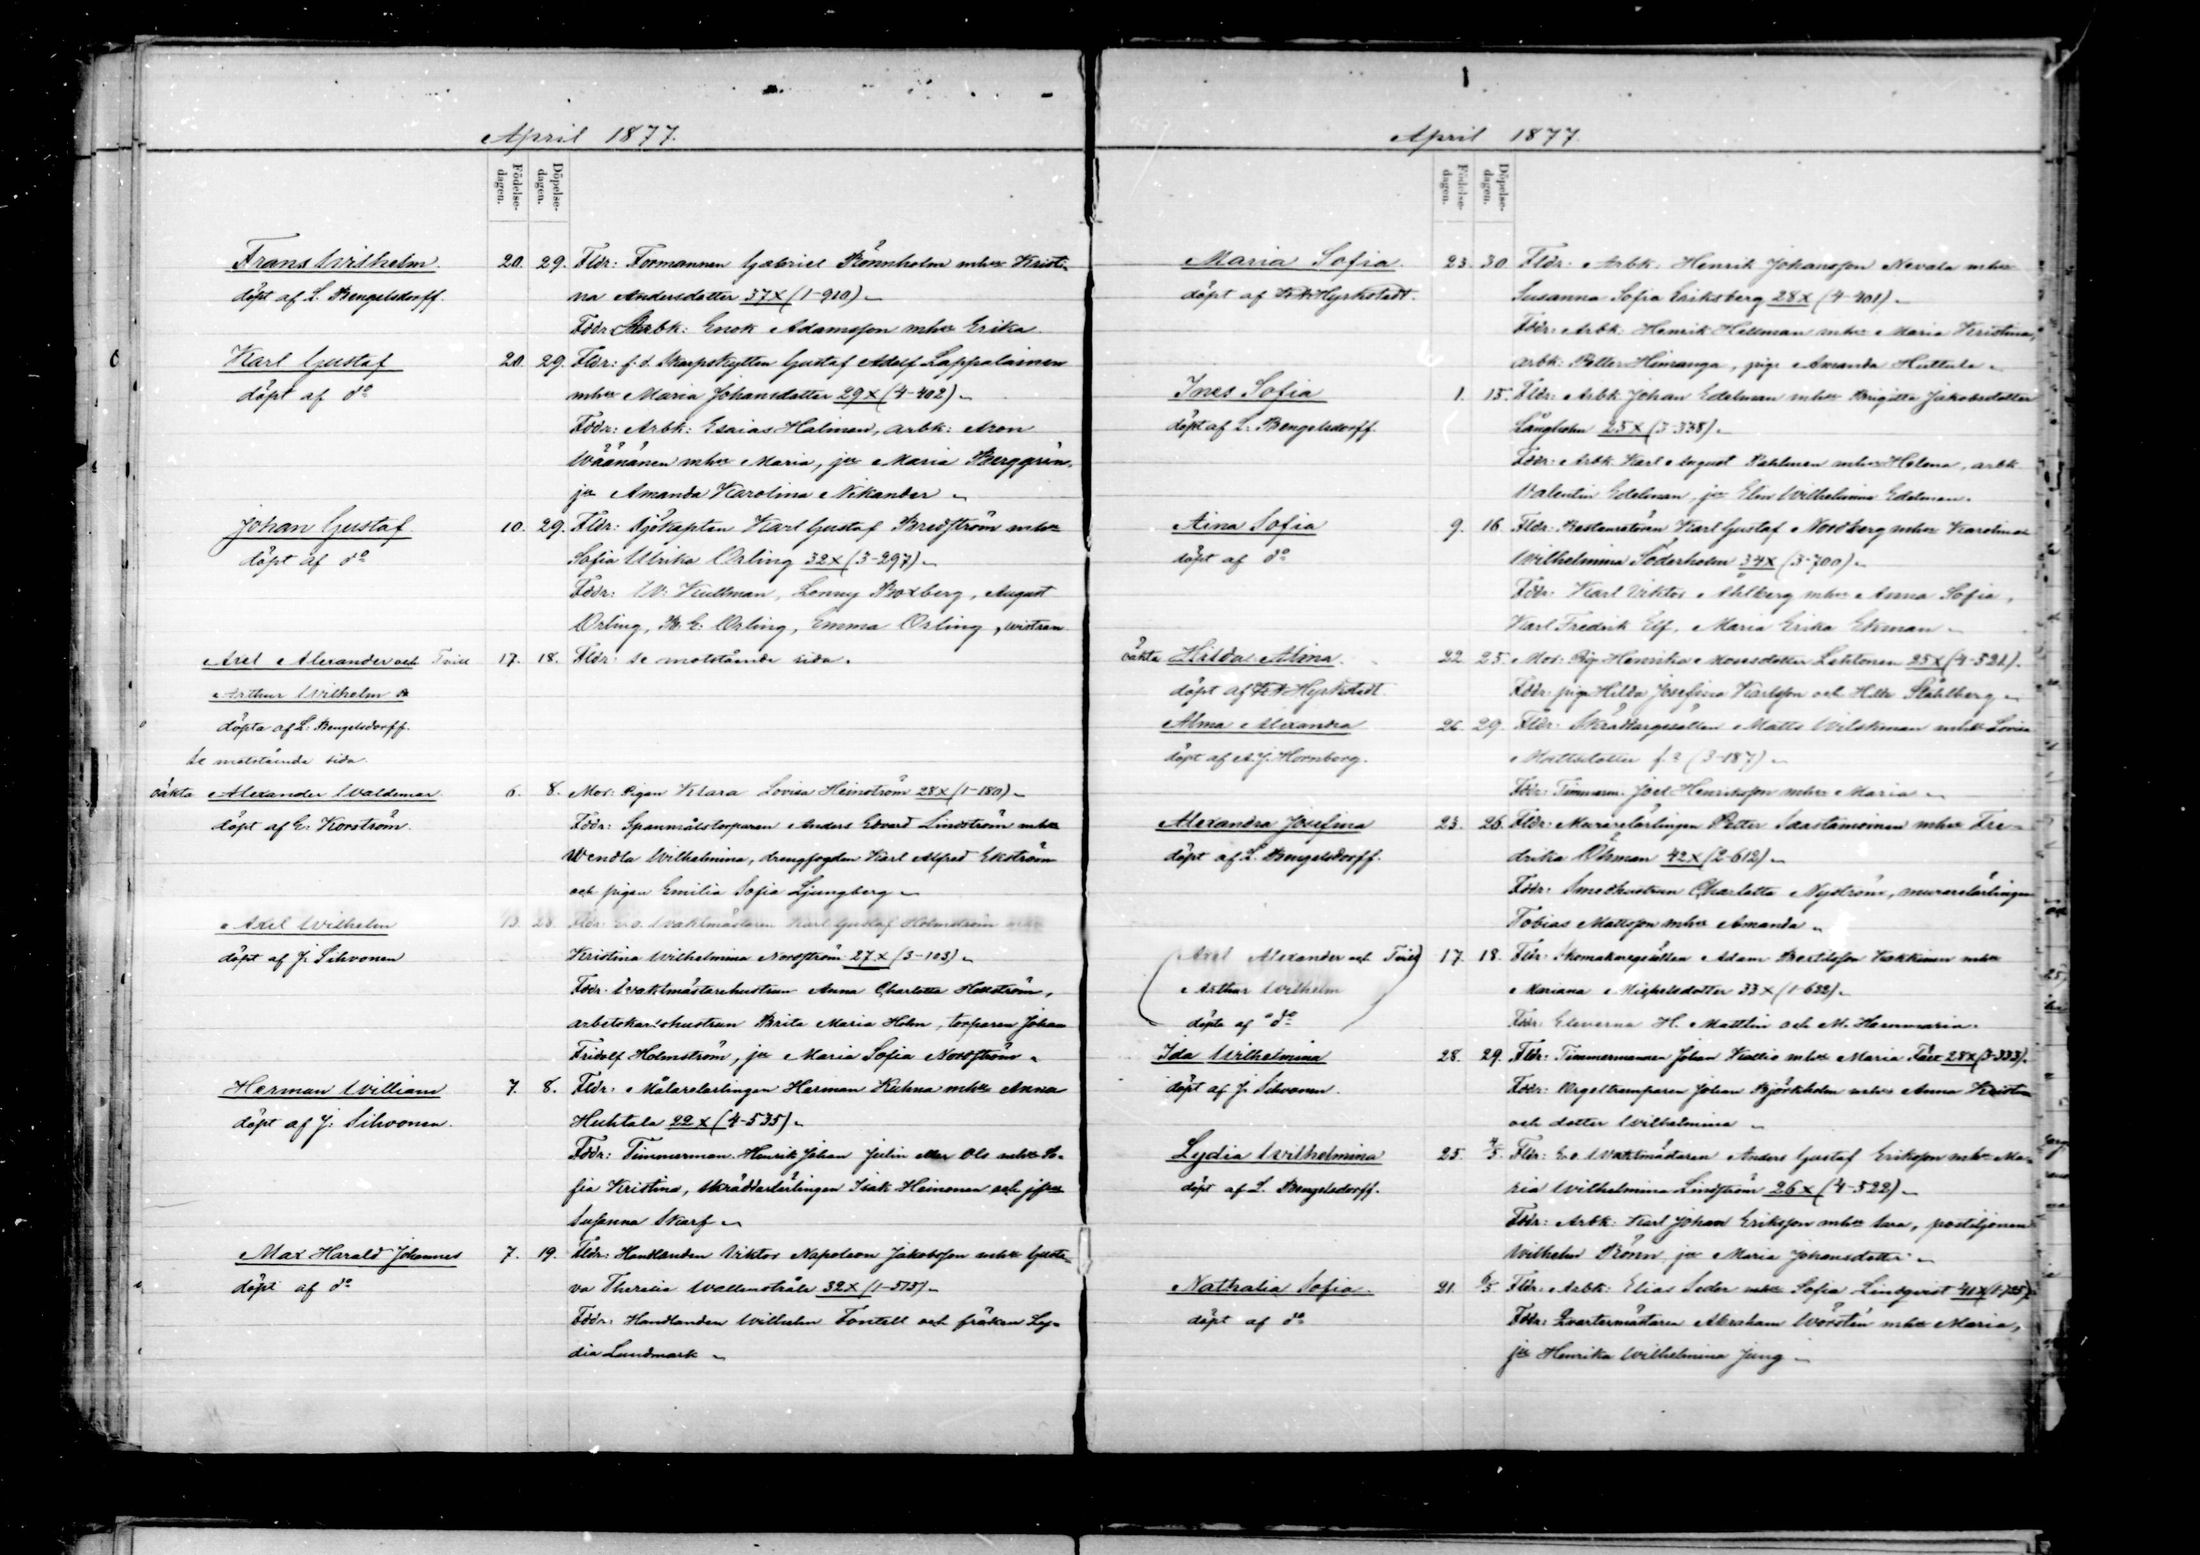 April 1877.
Födelse-
dagen.
Döpelse-
dagen.
Frans Wilhelm. 20. 29. Fldr: Formannen Gabriel Rönnholm m. hu Kristi-
döpt af L. Bengelsdorff. na Andersdotter 37x (1-910)
Fddr: Arbk: Enok Adamsson m. hu Erika.
Karl Gustaf 20. 29. Fldr: f. d. Skarpskytten Gustaf Adolf Lappalainen
döpt af do m. hu Maria Johansdotter 29x (4-402)
Fddr: Arbk: Esaias Halman, arbk: Aron
Wäänänen m. hu Maria, jfr Maria Berggrén,
jfr Amanda Karolina Nikander
Johan Gustaf 10. 29. Fldr: Sjökapten Karl Gustaf Bredström m. hu
döpt af do Sofia Ulrika Orling 32x (3-297)
Fddr: W. Kullman, Lonny Boxberg, August
Orling, K. E. Orling, Emma Orling,
Axel Alexander och Tvill 17. 18. Fldr: se motstående sida.
Arthur Wilhelm do
döpta af L. Bengelsdorff.
se motstående sida.
oäkta Alexander Waldemar 6. 8. Mor: Pigan Klara Lovisa Heinström 28x (1-180)
döpt af E. Korström. Fddr: Spanmålstorparen Anders Edvard Lindström m. hu
Wendla Wilhelmina, drengfogden Karl Alfred Ekström
och pigan Emilia Sofia Ljungberg
Axel Wilhelm 13. 28. Fldr: E. o. Waktmästaren Karl Gustaf Holmström
döpt af J. Sihvonen Kristina Wilhelmina Nordström 27x (3-103)
Fddr: Waktmästarehustrun Anna Charlotta Hellström,
arbetskarlshustrun Brita Maria Holm, torparen Johan
Fridolf Holmström, jfr Maria Sofia Nordström
Herman William 7. 8. Fldr: Målarelärlingen Herman Kuhna m. hu Anna
döpt af J. Sihvonen. Huhtala 22x (4-535)
Fddr: Timmerman Henrik Johan Julin eller Ols m. hu So-
fia Kristina, Skräddarlärlingen Isak Heinonen och
Susanna Skarf
Max Harald Johannes 7. 19. Fldr: Handlanden Viktor Napoleon Jakobsson m. hu Gusta-
döpt af do va Theresia Wallenstråle 32x (1-513)
Fddr: Handlanden Wilhelm Fontell och fröken Ly-
dia Lundmark
April 1877.
Födelse-
dagen.
Döpelse-
dagen.
Maria Sofia. 23. 30. Fldr: Arbk: Henrik Johansson Nevala m. hu
döpt af Hyrkstedt. Susanna Sofia Eriksberg 28x (4-401)
Fddr: Arbk: Henrik Hellman m. hu Maria Kristina,
arbk: Petter Himanga, pig. Amanda Huttula
Ines Sofia 1. 15. Fldr: Arbk: Johan Edelman m. hu Brigitta Jakobsdotter
döpt af L. Bengelsdorff. Långholm 25x (3-338)
Fddr: Arbk: Karl August Dahlman m. hu Helena, arbk:
Valentin Edelman, jfr Elin Wilhelmina Edelman.
Aina Sofia 9. 16. Fldr: Restauratören Karl Gustaf Nordberg m. hu Karolina
döpt af do Wilhelmina Söderholm 34x (3-700)
Fddr: Karl Viktor Ahlberg m. hu Anna Sofia,
Karl Fredrik Elf, Maria Erika Ekman
oäkta Hilda Alma. 22. 25. Mor: Pig. Henrika Mosesdotter Lehtonen 25x (4-521).
döpt af Hyrkstedt. Fddr: pig. Hilda Josefina Karlsson och Ståhlberg
Alma Alexandra 26. 29. Fldr: Skräddargesällen Matts Wilskman m. hu Lovisa
döpt af A. J. Hornborg. Mattsdotter (3-187)
Fddr: Timmerm. Joel Henriksson m. hu Maria
Alexandra Josefina 23. 26. Fldr: Murarelärlingen Petter Saastamoinen m. hu Fre-
döpt af L. Bengelsdorff. drika Öhman 42x (2-612)
Fddr: Smedhustrun Charlotta Nyström, murarelärlingen
Tobias Mattsson m. hu Amanda
Axel Alexander och Tvill 17. 18. Fldr: Skomakaregesällen Adam Bertilsson Kekkinen m. hu
Arthur Wilhelm Mariana Mickelsdotter 33x (1-622)
döpta af do Fddr: Eleverna H. Mattlin och M. Hemmaria.
Ida Wilhelmina 28. 29. Fldr: Timmermannen Johan Kallio m. hu Maria 28x (3-333).
döpt af J. Sihvonen. Fddr: Orgeltramparen Johan Björkholm m. hu Anna Kristina
och dotter Wilhelmina
Lydia Wilhelmina 25. 4/5. Fldr: E. o. Waktmästaren Anders Gustaf Eriksson m. hu Ma-
döpt af L. Bengelsdorff. ria Wilhelmina Lindström 26x (4-522)
Fddr: Arbk: Karl Johan Eriksson m. hu Sara, postiljonen
Wilhelm Rönn, jfr Maria Johansdotter
Nathalia Sofia. 21. 6/5 Fldr: Arbk: Elias Seder m. hu Sofia Lindqvist 41x (1-725).
döpt af do Fddr: Qvartermästaren Abraham Wörstén m. hu Maria,
jfr Henrika Wilhelmina Jung